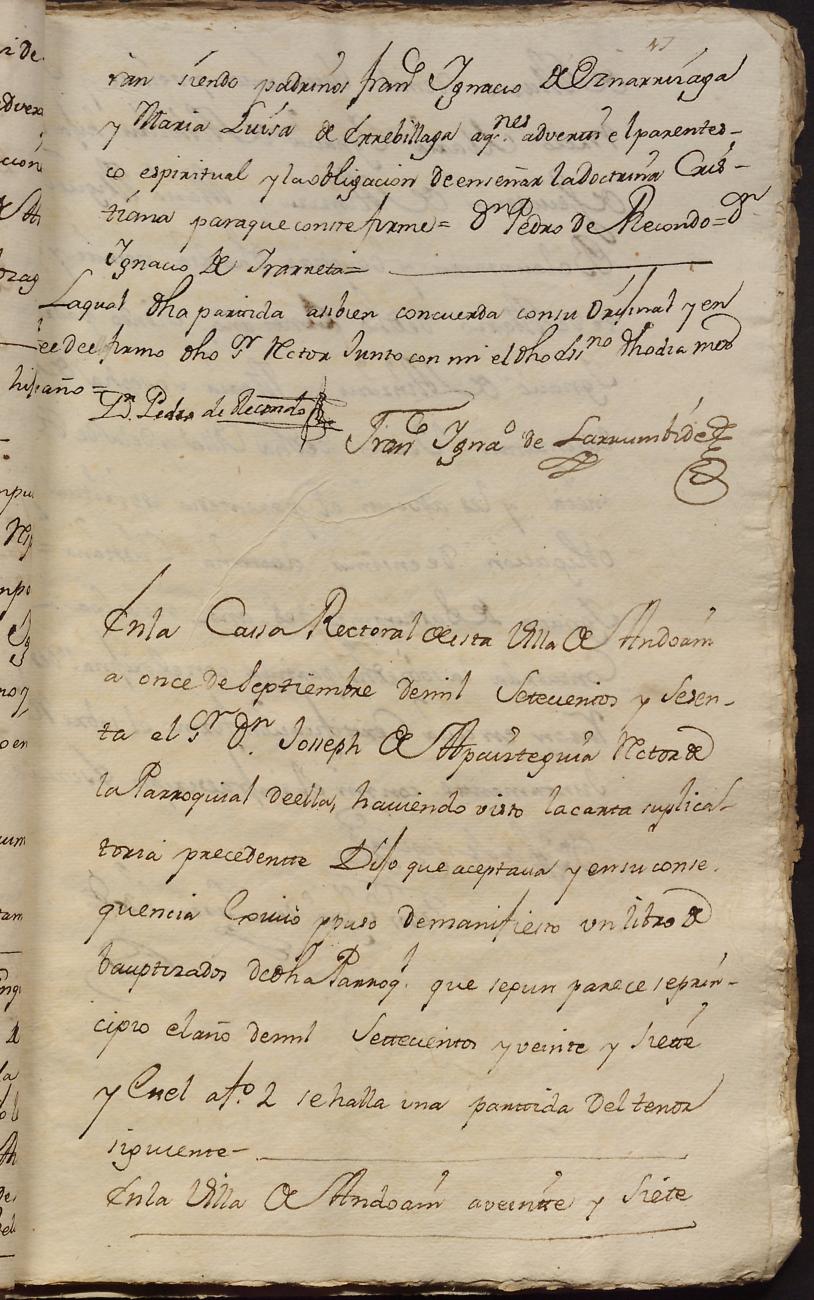 47
ran siendo padrinos fran.co Ygnacio de Oznarriaga
y Maria Luisa de Errebillaga aq.nes adverti el parentes-
co espiritual y la obligacion de enseñar la Doctrina Cris-
tiana para que conste firme= Dn Pedro de Recondo= Dn
Ygnacio de Irarreta=
La qual dha partida asibien concuerda con su Orijinal y en
fee de ello firmo dho Sr Rector Junto con mi el dho Ess.no dho dia mes
y año=
Dn. Pedro de Recondo
Fran.co Ygna.o de Larrumbide
En la Cassa Rectoral de esta Villa de Andoain
a once de Septiembre de mil Setecientos y Sesen-
ta el Sr Dn. Joseph de Apaizteguia Rector de
la Parroquial de ella, haviendo visto la carta suplica-
toria precedentte Dijo que aceptava y en su conse-
quencia Exivio y puso de manifiesto un libro de
bauptizados de dha Parroq.l que segun parece se prin-
cipio el año de mil Settecientos y veinte y Siette
y en el a fo. 2 se halla una parttida del tenor
siguiente-
En la Villa de Andoain a veintte y Siete